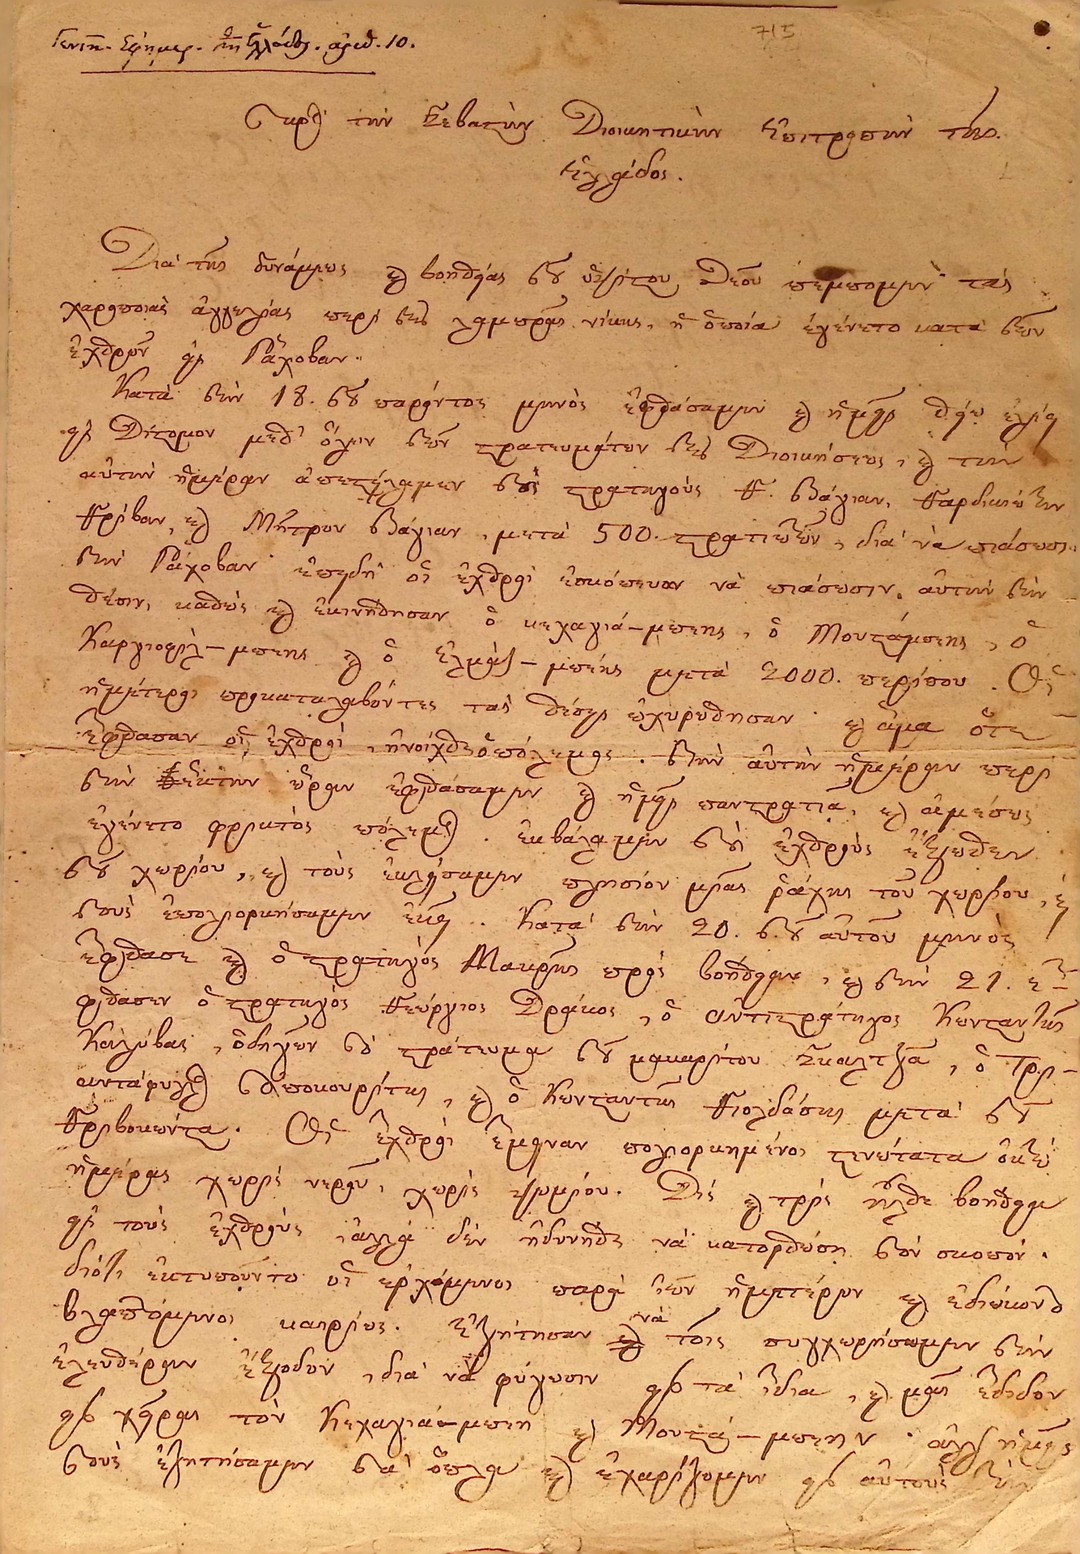 Γενικ. Εφημερ. της Ελλάδος. αριθ. 10.
715
Πρὸς τὴν Σεβαστὴν Διοικητικὴν Ἐπιτροπὴν τῆς
Ἑλλάδος.
Διὰ τῆς δυνάμεως καὶ βοηθείας τοῦ ὑψίστου Θεοῦ πέμπομεν τὰς
χαροποιὰς ἀγγελίας περὶ τῆς λαμπρᾶς νίκης, ἡ ὁποία ἐγένετο κατὰ τῶν
ἐχθρῶν εἰς Ῥάχοβαν.
Κατὰ τὴν 18. τοῦ παρόντος μηνὸς ἐφθάσαμεν καὶ ἡμεῖς
εἰς Δίστομον μεθ' ὅλων τῶν στρατευμάτων τῆς Διοικήσεως, καὶ τὴν
αὐτὴν ἡμέραν ἀπεστείλαμεν τοὺς στρατηγοὺς Γ. Βάγιαν, Γαρδικιώτην
Γρίβαν, καὶ Μῆτρον Βάγιαν, μετὰ 500. στρατιωτῶν, διὰ νὰ πιάσωσι
τὴν Ῥάχοβαν ἐπειδὴ οἱ ἐχθροὶ ἐσκόπευον νὰ πιάσωσιν αὐτὴν τὴν
θέσιν, καθὼς καὶ ἐκινήθησαν ὁ κεχαγιά-μπεης, ὁ Μουστάμπεης, ὁ
Καριοφίλ-μπεης καὶ ὁ Ἐλμάζ-μπεης μετὰ 2000. περίπου. Οἱ
ἡμέτεροι προκαταλαβόντες τὰς θέσεις ὀχυρώθησαν καὶ ἅμα ὅτε
ἔφθασαν οἱ ἐχθροὶ, ἠνοίχθη ὁ πόλεμος. τὴν αὐτὴν ἡμέραν περὶ
τὴν ἕκτην ὥραν ἐφθάσαμεν καὶ ἡμεῖς πανστρατιᾷ, καὶ ἀμέσως
ἐγένετο φρικτὸς πόλεμος. ἐκβάλαμεν τοὺς ἐχθροὺς ἔξωθεν
τοῦ χωρίου, καὶ τοὺς ἐκλείσαμεν πλησίον μιᾶς ῥάχης τοῦ χωρίου, καὶ
τοὺς ἐπολιορκήσαμεν ἐκεῖ. Κατὰ τὴν 20. τοῦ αὐτοῦ μηνὸς
ἔφθασε καὶ ὁ στρατηγὸς Μακρῆς πρὸς βοήθειαν, καὶ τὴν 21. ἔ-
φθασεν ὁ στρατηγὸς Γεώργιος Δράκος, ὁ ἀντιστράτηγος Κωνσταντῆς
Καλύβας, ὁδηγῶν τὸ στράτευμα τοῦ μακαρίτου Σκαλτζᾶ, ὁ Τρι-
αντάφυλλος Ἀποκουρίτης, καὶ ὁ Κωνσταντῆς Γιολδάσης μετὰ τοῦ
Γριβοκώστα. Οἱ ἐχθροὶ ἔμειναν πολιορκημένοι στενώτατα ὀκτὼ
ἡμέρας χωρὶς νεροῦ, χωρὶς ψωμίου. Δὶς καὶ τρὶς ἦλθε βοήθεια
εἰς τοὺς ἐχθροὺς, ἀλλὰ δὲν ἠδυνήθη νὰ κατορθώσῃ τὸν σκοπόν.
διότι ἐκτυποῦντο οἱ ἐρχόμενοι παρὰ τῶν ἡμετέρων καὶ ἐδιώκοντο
βλαπτόμενοι καιρίως. Ἐζήτησαν νὰ τοῖς συγχωρήσωμεν τὴν
ἐλευθέραν ἔξοδον, διὰ νὰ φύγωσιν εἰς τὰ ἴδια, καὶ μᾶς ἔδιδον
εἰς χεῖρας τὸν Κεχαγιά-μπεη καὶ Μουστά-μπεην. ἀλλ' ἡμεῖς
τοὺς ἐζητήσαμεν τὰ ὅπλα καὶ ἐχαρίζομεν εἰς αὐτοὺς τὴν